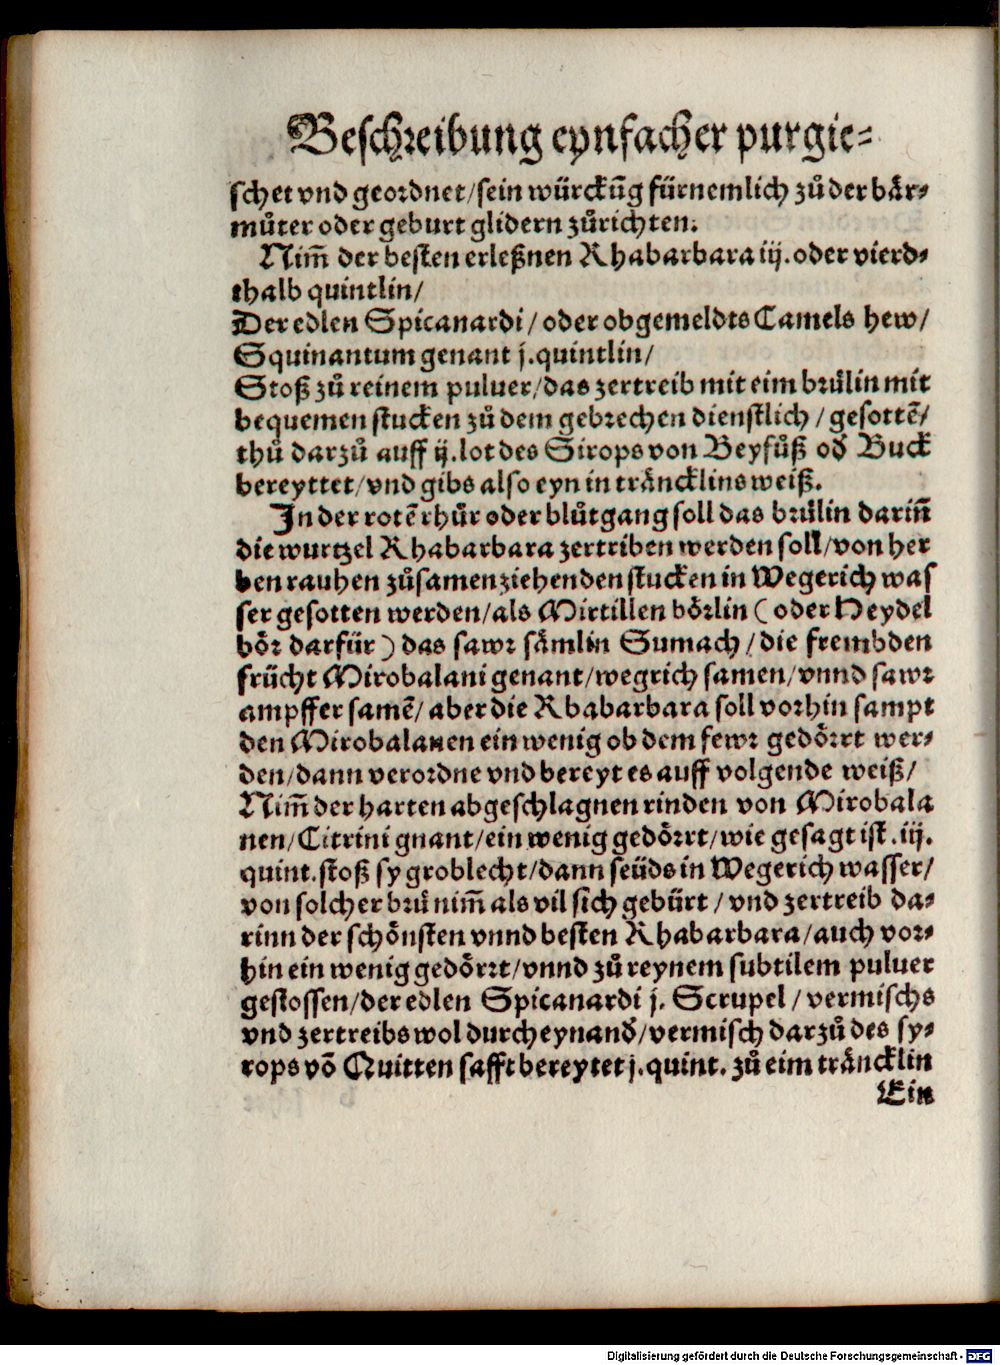 Beschreibung eynfacher purgie⸗
schet vnd geordnet/sein würckūg fürnemlich zů der bär⸗
můter oder geburt glidern zůrichten.
Nim̃ der besten erleßnen Rhabarbara iij. oder vierd⸗
thalb quintlin/
Der edlen Spicanardi/oder obgemeldts Camels hew/
Squinantum genant j. quintlin/
Stoß zů reinem puluer/das zertreib mit eim brülin mit
bequemen stucken zů dem gebrechen dienstlich/gesottē/
thů darzů auff ij. lot des Sirops von Beyfůß oď Buck
bereyttet/vnd gibs also eyn in träncklins weiß.
In der rotē rhůr oder blůtgang soll das brülin dariñ
die wurtzel Rhabarbara zertriben werden soll/von her
ben rauhen zůsamen ziehenden stucken in Wegerich was
ser gesotten werden/als Mirtillen börlin (oder Heydel
bör darfür) das sawr sämlin Sumach/die frembden
frücht Mirobalani genant/wegrich samen/vnnd sawr
ampffer samē/aber die Rhabarbara soll vorhin sampt
den Mirobalanen ein wenig ob dem fewr gedörrt wer⸗
den/dann verordne vnd bereyt es auff volgende weiß/
Nim̃ der harten abgeschlagnen rinden von Mirobala
nen/Citrini gnant/ein wenig gedörrt/wie gesagt ist. iij.
quint. stoß sy groblecht/dann seüds in Wegerich wasser/
von solcher brü nim̃ als vil sich gebürt/vnd zertreib da⸗
rinn der schönsten vnnd besten Rhabarbara/auch vor⸗
hin ein wenig gedörrt/vnnd zů reynem subtilem puluer
gestossen/der edlen Spicanardi j. Scrupel/vermischs
vnd zertreibs wol durch eynand/vermisch darzů des sy⸗
rops vō Quitten safft bereytet j. quint. zů eim träncklin
Ein
Digitalisierung gefördert durch die Deutsche Forschungsgemeinschaft - DFG